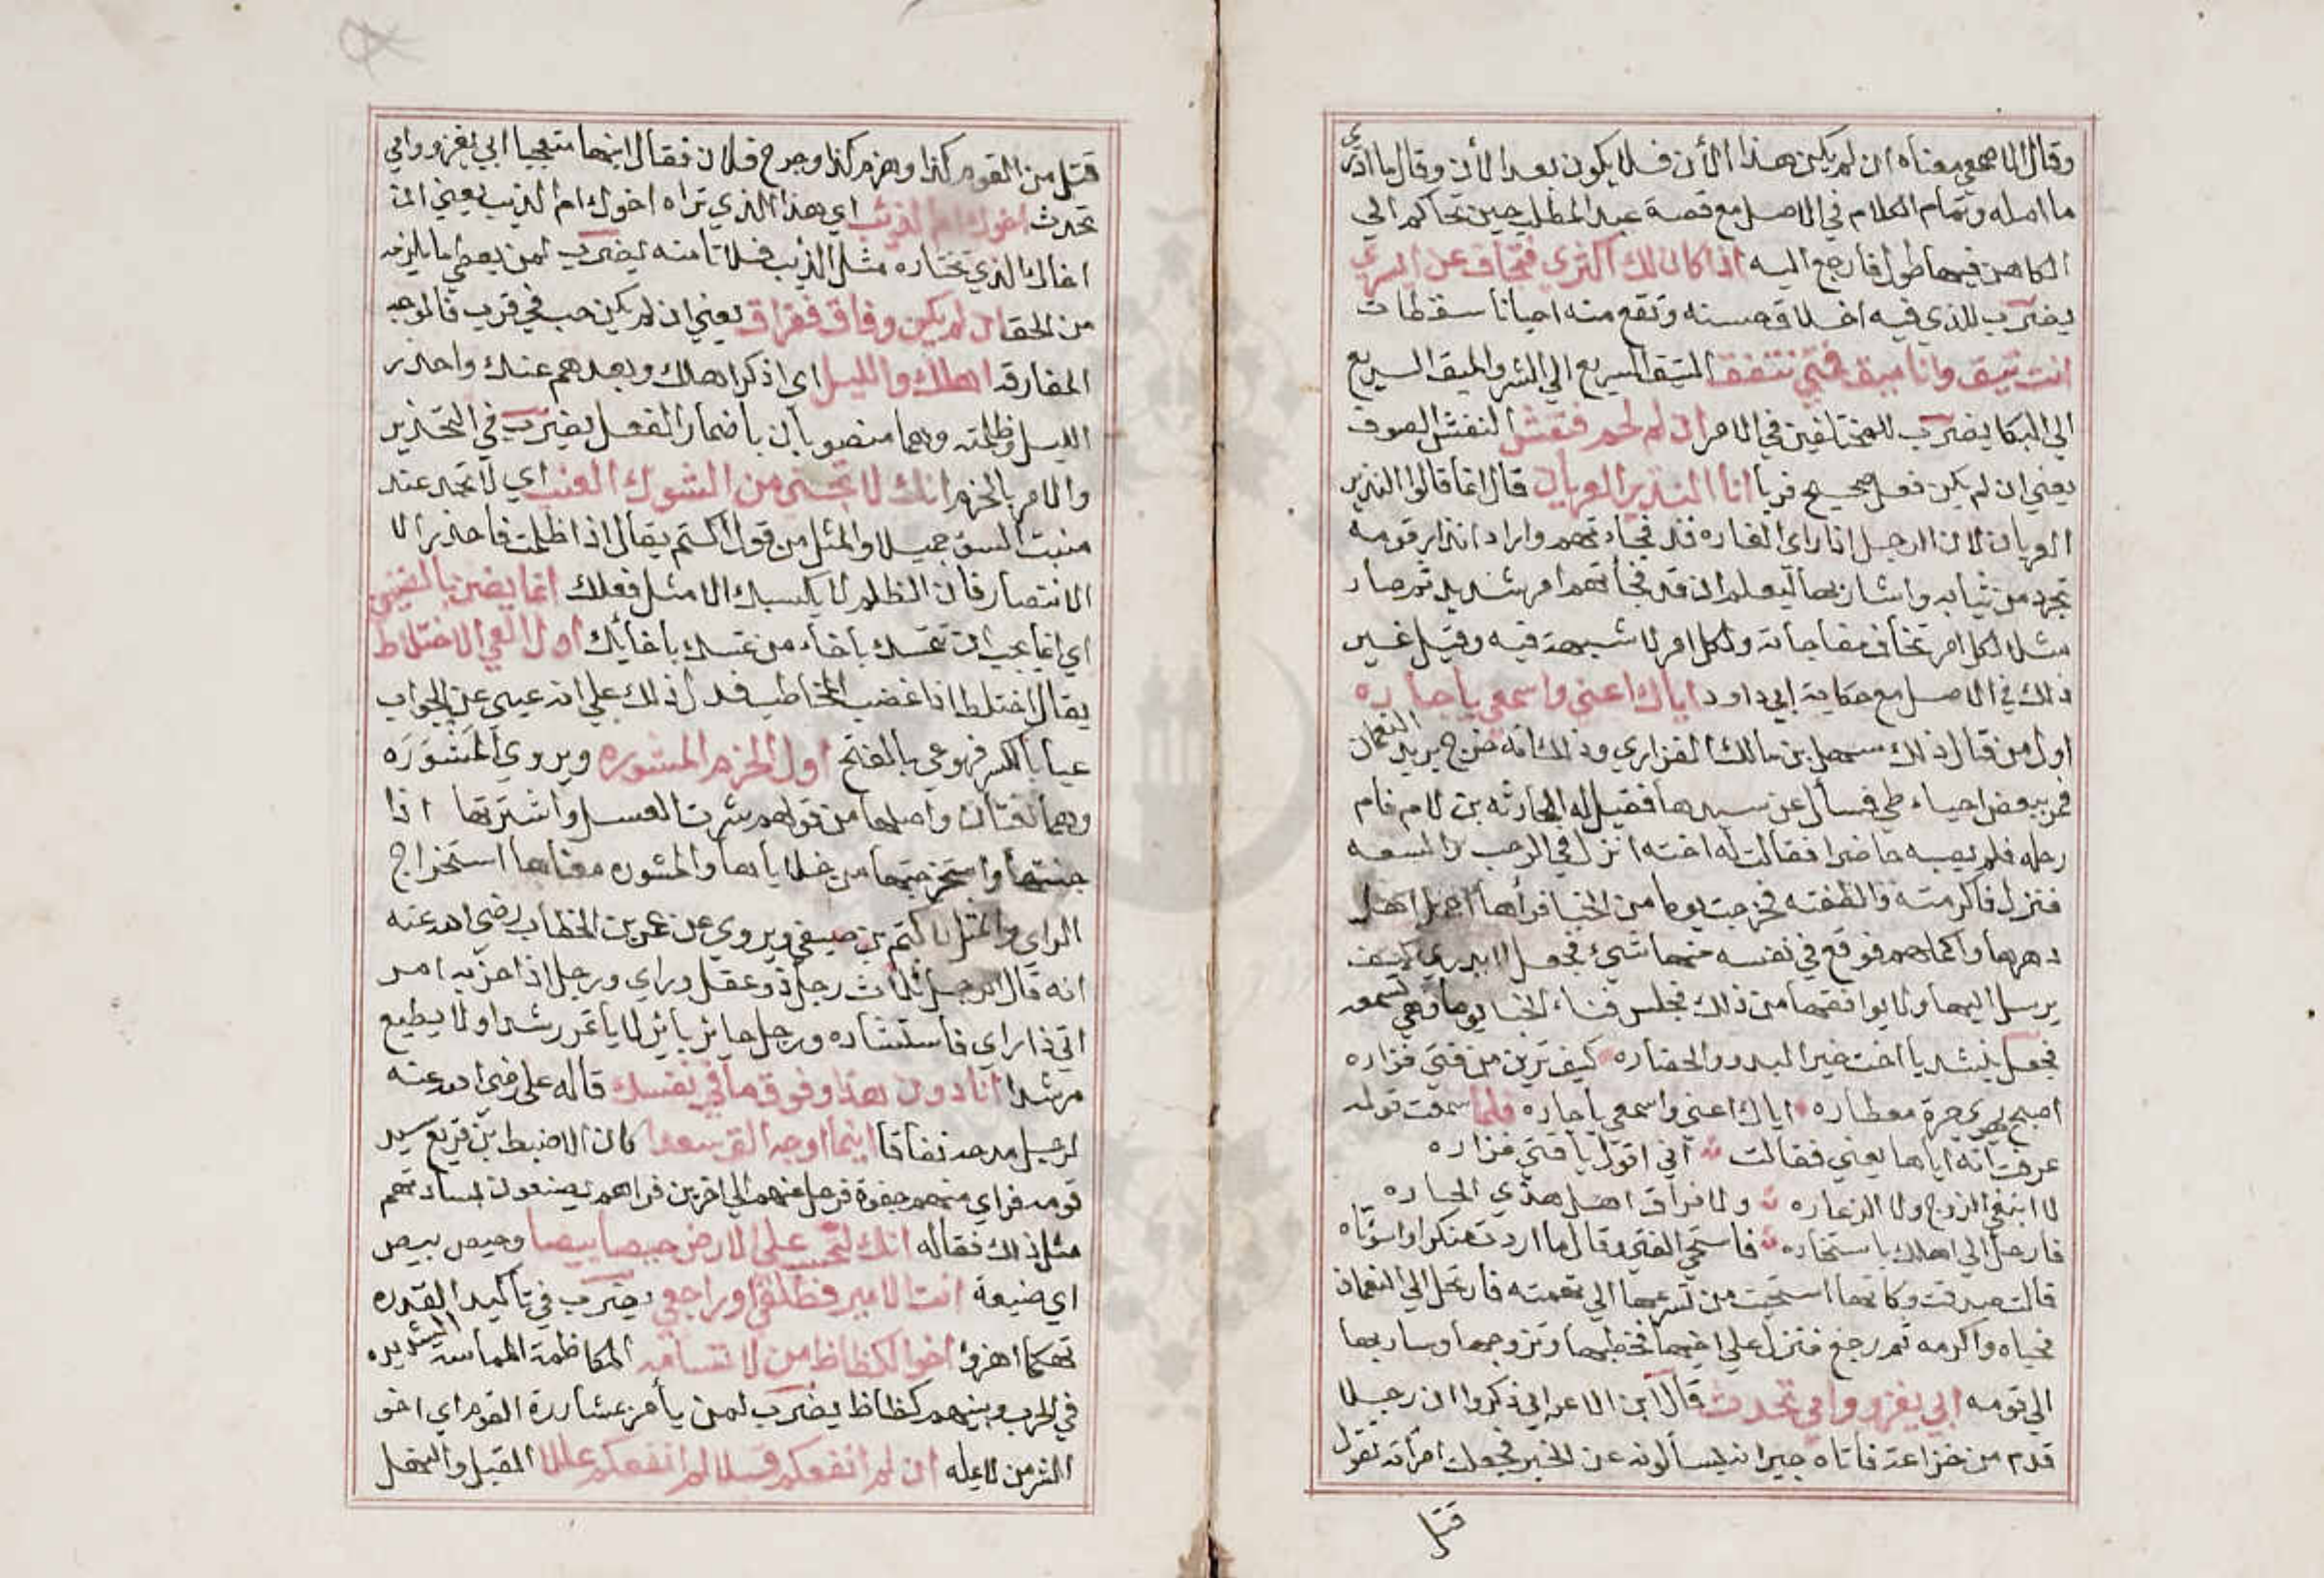 وقال الاصمعي معناه ان لم يكن هذا الأن فلا يكون بعد الأن وقال ما ادري
ما اصله وتمام الكلام في الاصل مع قصة عبد المطلب حين تحاكم الي
الكاهن فيها طول فارجع اليه اذا كان لك اكثري فتجاف عن ايسري
يضرب للذي فيه اخلاق حسنه وتقع منه احيانا سقطات
انت تيق وانا ميق فمتي نتفق التيق السريع الي الشر والميق السريع
الي البكا يضرب للمختلفين في الامر ان لم لحم فنفش النفش الصوف
يعني ان لم يكن فعل صحيح فريا انا النذير العريان قال انما قالوا النذير
العريان لان الرجل اذا راي الغاره قد فجاءتهم واراد انذار قومه
تجرد من ثيابه واشار بها ليعلم ان قد فجأتهم امر شديد ثم صار
مثلا لكل امر تخاف مفاجاته ولكل امر لا شبهة فيه وقيل غير
ذلك في الاصل مع حكاية ابي داود اياك اعني واسمعي ياجاره
اول من قال ذلك سهل بن مالك الفزاري وذلك انه خرج يريد النعمان
فمر ببعض احياء طي فسأل عن سيدها فقيل له الحارثه بن لام فام
رحله فلم يصبه حاضرا فقالت له اخته انزل في الرحب والسعه
فنزل فاكرمته والطفته فخرجت يوما من الخبا فرأها اجمل اهل
دهرها واكملهم فوقع في نفسه منها شيء فجعل لا يدري كيف
يرسل اليها ولا يوافقها من ذلك فجلس فناء الخبا يوما وهي تسمعه
فجعل ينشد يا اخت خير البدو والحضاره كيف ترين من فتي فزاره
اصبح يهوي حرة معطاره اياك اعني واسمعي ياجاره فلما سمعت قوله
عرفت انه اياها يعني فقالت اني اقول يا فتي فزاره
لا ابتغي الزوج ولا الزعاره ولا فراق اهل هذي الجاره
فارحل الي اهلك باستخاره فاستحي الفتي وقال ما اردت منكرا واسوتاه
قالت صدقت وكانها استحيت من تسرعها الي تهمته فارتحل الي النعمان
فحياه واكرمه ثم رجع فنزل علي اخيها فخطبها وتزوجها وسار بها
الي قومه ابي يغزو وامي تحدث قال ابن الاعرابي ذكروا ان رجلا
قدم من غزاة فاتاه جيرانه يسألونه عن الخبر فجعلت امرأته تقول
قتل
قتل من القوم كذا وهزم كذا وجرح فلان فقال ابنها متعجبا ابي يغزو وامي
تحدث اخوك ام الذئب اي هذا الذي تراه اخوك ام الذيب يعني ان
اخاك الذي تختاره مثل الذيب فلا تامنه يضرب لمن يعطي ما يلزمه
من الحق ان لم يكن وفاق ففراق يعني ان لم يكن حب في قرب فالوجه
المفارقه اهلك والليل اي اذكر اهلك وبعدهم عنك واحذر
الليل وظلمته وهما منصوبان باضمار الفعل يضرب في التحذير
والامر بالحزم انك لا تجني من الشوك العنب اي لا تجد عند
منبت السوء جميلا والمثل من قول اكثم يقال اذا ظلمت فاحذر الا
الانتصار فان الظلم لا يكسبك الا مثل فعلك انما يضن بالضنين
اي انما يجب ان تمسك باخاء من تمسك باخائك اول العي الاختلاط
يقال اختلط اذا غضب المخاطب فدل ذلك علي انه عيي عن الجواب
عيا بالكسر فهو عي بالفتح اول الحزم المشوره ويروي المَشْوَرَه
وهما لغتان واصلها من قولهم شرت العسل واشترتها اذا
جنيتها واستخرجتها من خلاياها والمشوره معناها استخراج
الراي والمثل لاكثم بن صيفي ويروي عن عمر بن الخطاب رضي الله عنه
انه قال الرجل ثلاث رجل ذو عقل وراي ورجل اذا حزبه امر
اتي ذا راي فاستشاره ورجل حائر بائر لا يأتمر رشدا ولا يطيع
مرشدا انا دون هذا وفوق ما في نفسك قاله علي رضي الله عنه
لرجل مدحه نفاقا اينما اوجه الق سعدا كان الاضبط بن قريع سيد
قومه فراي منهم جفوة فرحل عنهم الي اخرين فراهم يصنعون بساداتهم
مثل ذلك فقاله انك لتحسب علي الارض حيصا بيصا وحيص بيص
اي ضيقة انت الامير فطلقي او راجعي يضرب في تاكيد القدره
تهكما اهزوا اخو الكظاظ من لا تسامه المكاظمة المماسه الشديده
في الحرب وبينهم كظاظ يضرب لمن يأمر بمشاررة القوم اي اخو
الشر من لا يمله ان لم انفعكم قبلا لم انفعكم عللا القبل والنهل